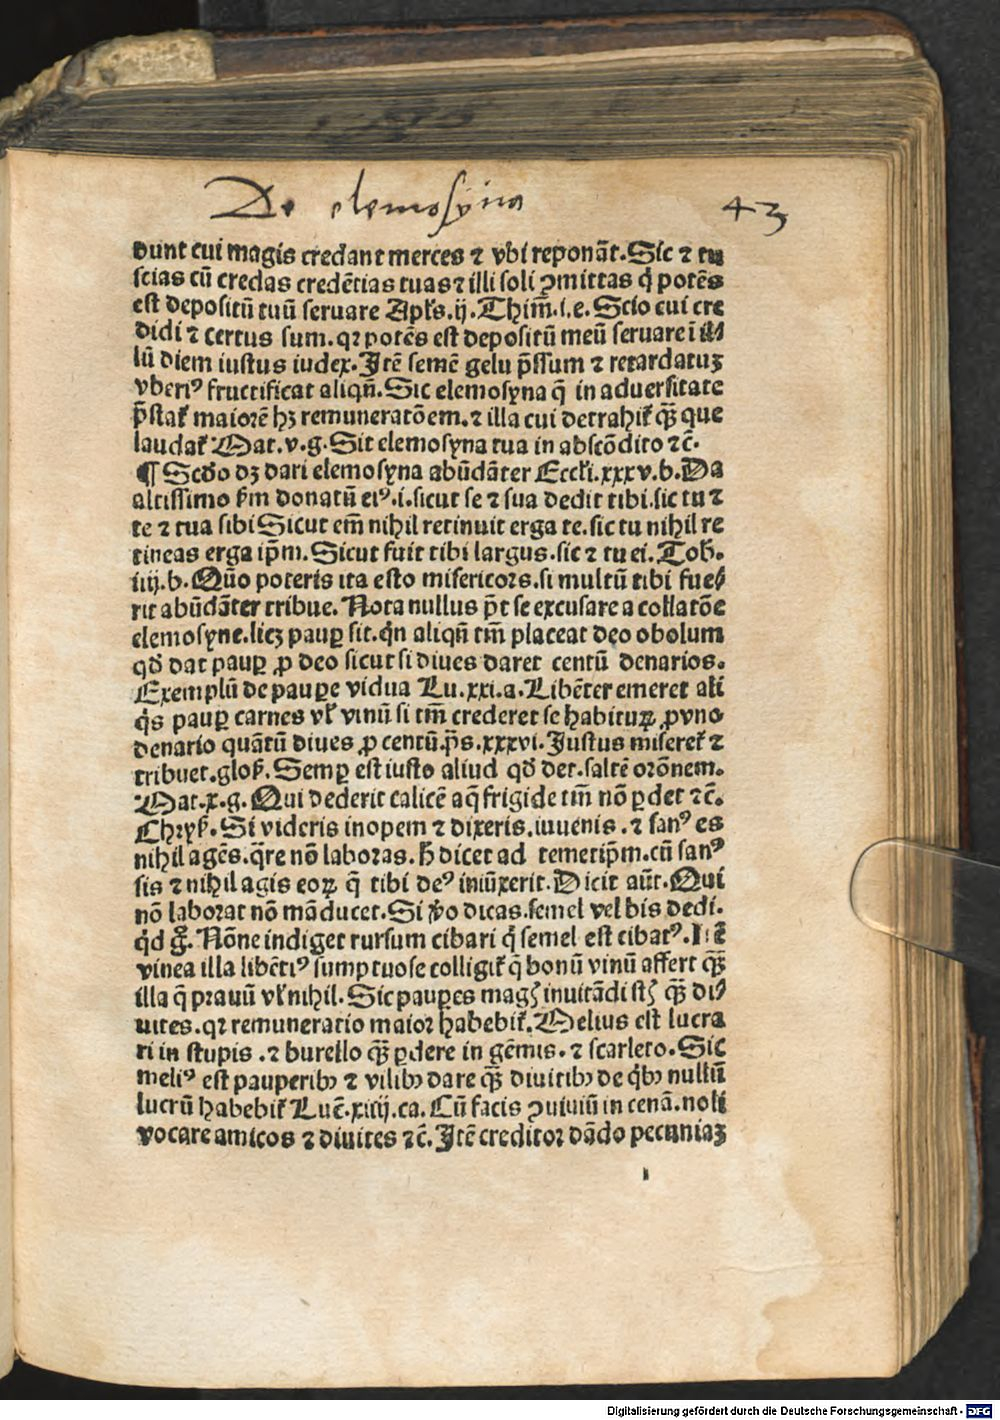 De elemosyna 43
dunt cui magis credant merces ⁊ vbi reponāt. Sic ⁊ tu
scias cū credas credētias tuas ⁊ illi soli ꝓmittas q̇ potēs
est depositū tuū seruare Apl's. ij. Thim̄. i. e. Scio cui cre
didi ⁊ certus sum. qꝛ potēs est depositū meū seruare ī il
lū diem iustus iudex. Itē semē gelu p̄ssum ⁊ retardatuꝫ
vberiꝰ fructificat aliqn̄. Sic elemosyna q̄ in aduersitate
p̄stat᷑ maiorē hꝫ remuneratōem. ⁊ illa cui detrahit᷑ qȝ̄ que
laudat᷑ Mat. v. g. Sit elemosyna tua in abscōdito ⁊c̄.
¶ Scd̄o dꝫ dari elemosyna abūdāter Eccl'i. xxxv. b. Da
altissimo km̄ donatū eiꝰ. i. sicut se ⁊ sua dedit tibi. sic tu ⁊
te ⁊ tua sibi Sicut em̄ nihil retinuit erga te. sic tu nihil re
tineas erga ip̄m. Sicut fuit tibi largus. sic ⁊ tu ei. Tob̄.
iiij. b. Quō poteris ita esto misericors. si multū tibi fue
rit abūdāter tribue. Nota nullus pt̄ se excusare a collatōe
elemosyne. licꝫ pauꝑ sit. qṅ aliqn̄ tm̄ placeat deo obolum
qd̄ dat pauꝑ ꝓ deo sicut si diues daret centū denarios.
Exemplū de pauꝑe vidua Lu. xxi. a. Libēter emeret ali
q̇s pauꝑ carnes vl' vinū si tm̄ crederet se habituꝝ ꝓ vno
denario quātū diues ꝓ centū. ps̄. xxxvi. Iustus miseret᷑ ⁊
tribuet. glos̄. Semꝑ est iusto aliud qd̄ det. saltē orōnem.
Mat. x. g. Qui dederit calicē aq̄ frigide tm̄ nō ꝑdet ⁊c̄.
Chrys̄. Si videris inopem ⁊ dixeris. iuuenis. ⁊ sanꝰ es
nihil agēs. q̄re nō laboras. h̄ dicet ad temetip̄m. cū sanꝰ
sis ⁊ nihil agis eoꝝ q̄ tibi deꝰ iniūxerit. Dicit aūt. Qui
nō laborat nō māducet. Si v̄o dicas. semel vel bis dedi.
qḋ g̊. Nōne indiget rursum cibari q̇ semel est cibatꝰ. Itē
vinea illa libētiꝰ sumptuose colligit᷑ q̄ bonū vinū affert qȝ̄
illa q̄ prauū vl' nihil. Sic pauꝑes magꝭ inuitādi st̄ qȝ̄ di
uites. qꝛ remuneratio maior habebit᷑. Melius est lucra
ri in stupis. ⁊ burello qȝ̄ ꝑdere in gēmis. ⁊ scarleto. Sic
meliꝰ est pauperibꝫ ⁊ vilibꝫ dare qȝ̄ diuitibꝫ de q̇bꝫ nullū
lucrū habebit᷑ Luc̄. xiiij. ca. Cū facis ꝯuiuiū in cenā. noli
vocare amicos ⁊ diuites ⁊c̄. Itē creditor dādo pecuniaꝫ
Digitalisierung gefördert durch die Deutsche Forschungsgemeinschaft - DFG